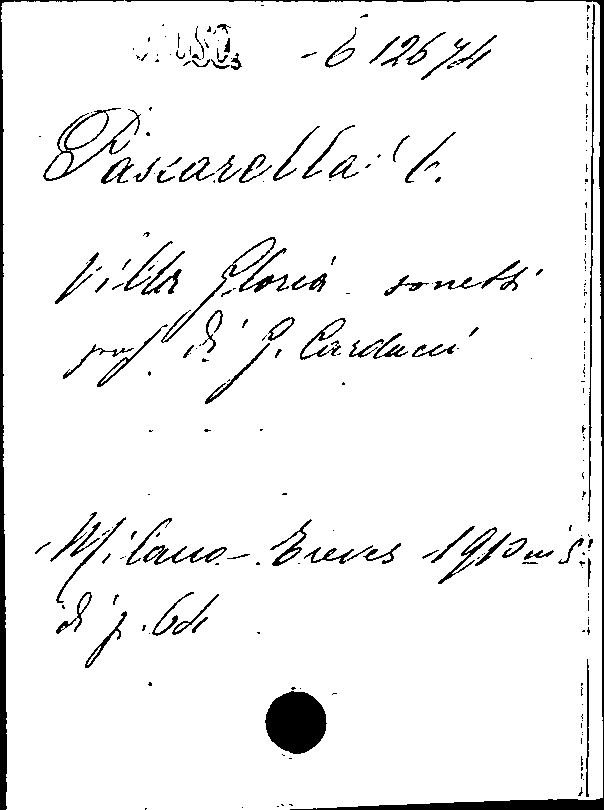 E 12674
Pascarella C.
Villa Gloria sonetti
pref. di G. Carducci
Milano Treves 1910 in 8
di p. 64